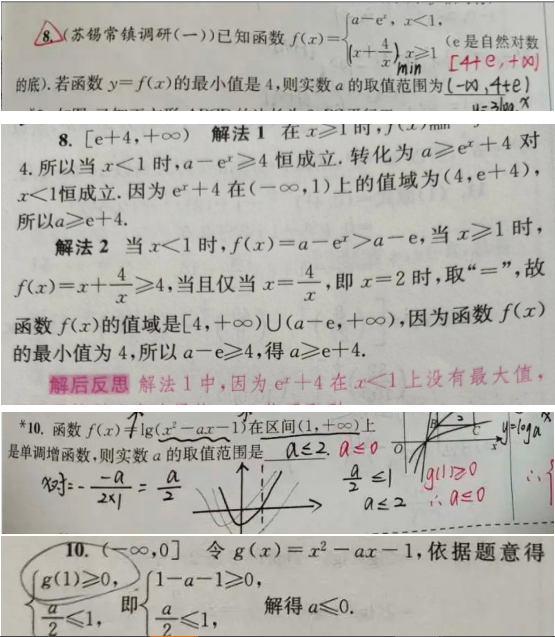 8. (苏锡常镇调研(一))已知函数 f(x)={a-eˣ, x<1, x+4/x, x≥1 (e是自然对数
min [4+e,+∞)
的底).若函数 y=f(x)的最小值是 4,则实数 a 的取值范围为(-∞,4+e)
8. [e+4,+∞) 解法 1 在 x≥1 时,f(x)min
4.所以当 x<1 时,a-eˣ≥4 恒成立.转化为 a≥eˣ+4 对
x<1恒成立.因为 eˣ+4 在(-∞,1)上的值域为(4,e+4),
所以a≥e+4.
解法 2 当 x<1 时,f(x)=a-eˣ>a-e,当 x≥1 时,
f(x)=x+4/x≥4,当且仅当 x=4/x,即 x=2 时,取“=”,故
函数 f(x)的值域是[4,+∞)∪(a-e,+∞),因为函数 f(x)
的最小值为 4,所以 a-e≥4,得 a≥e+4.
解后反思 解法 1 中,因为 eˣ+4 在 x<1 上没有最大值,
*10. 函数 f(x)=lg(x²-ax-1)在区间(1,+∞)上
是单调增函数,则实数 a 的取值范围是 a≤2. a≤0
x对=- -a/2×1 = a/2
a/2≤1
a≤2
g(1)≥0
∴a≤0
y=logₐx
10. (-∞,0] 令 g(x)=x²-ax-1,依据题意得
{g(1)≥0, a/2≤1, 即{1-a-1≥0, a/2≤1, 解得 a≤0.